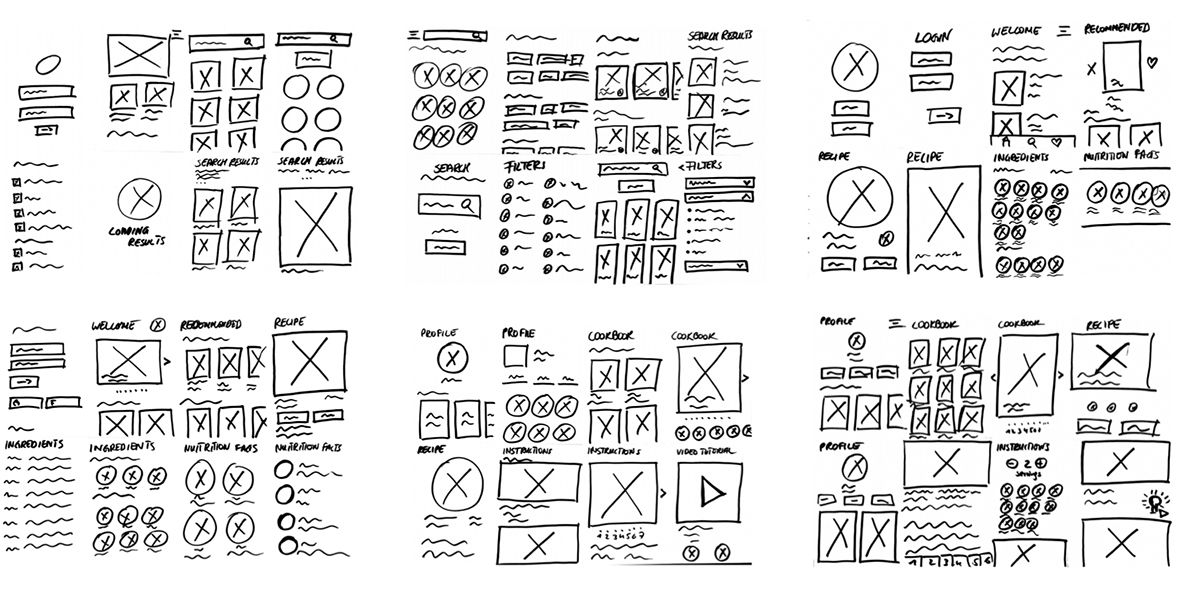 SEARCH RESULTS
SEARCH RESULTS
LOADING
RESULTS
SEARCH RESULTS
SEARCH
FILTERS
<FILTERS
LOGIN
WELCOME
RECOMMENDED
RECIPE
RECIPE
INGREDIENTS
NUTRITION FACTS
WELCOME
RECOMMENDED
RECIPE
INGREDIENTS
INGREDIENTS
NUTRITION FACTS
NUTRITION FACTS
PROFILE
PROFILE
COOKBOOK
COOKBOOK
RECIPE
INSTRUCTIONS
INSTRUCTIONS
VIDEO TUTORIAL
1 2 3 4 5 6 7
PROFILE
COOKBOOK
COOKBOOK
RECIPE
PROFILE
INSTRUCTIONS
2
servings
1 2 3 4 5 6